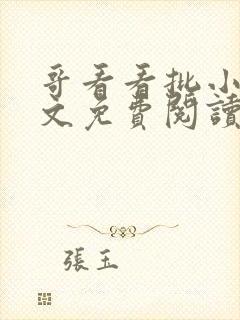 哥看看批小
文免費閱讀
張玉